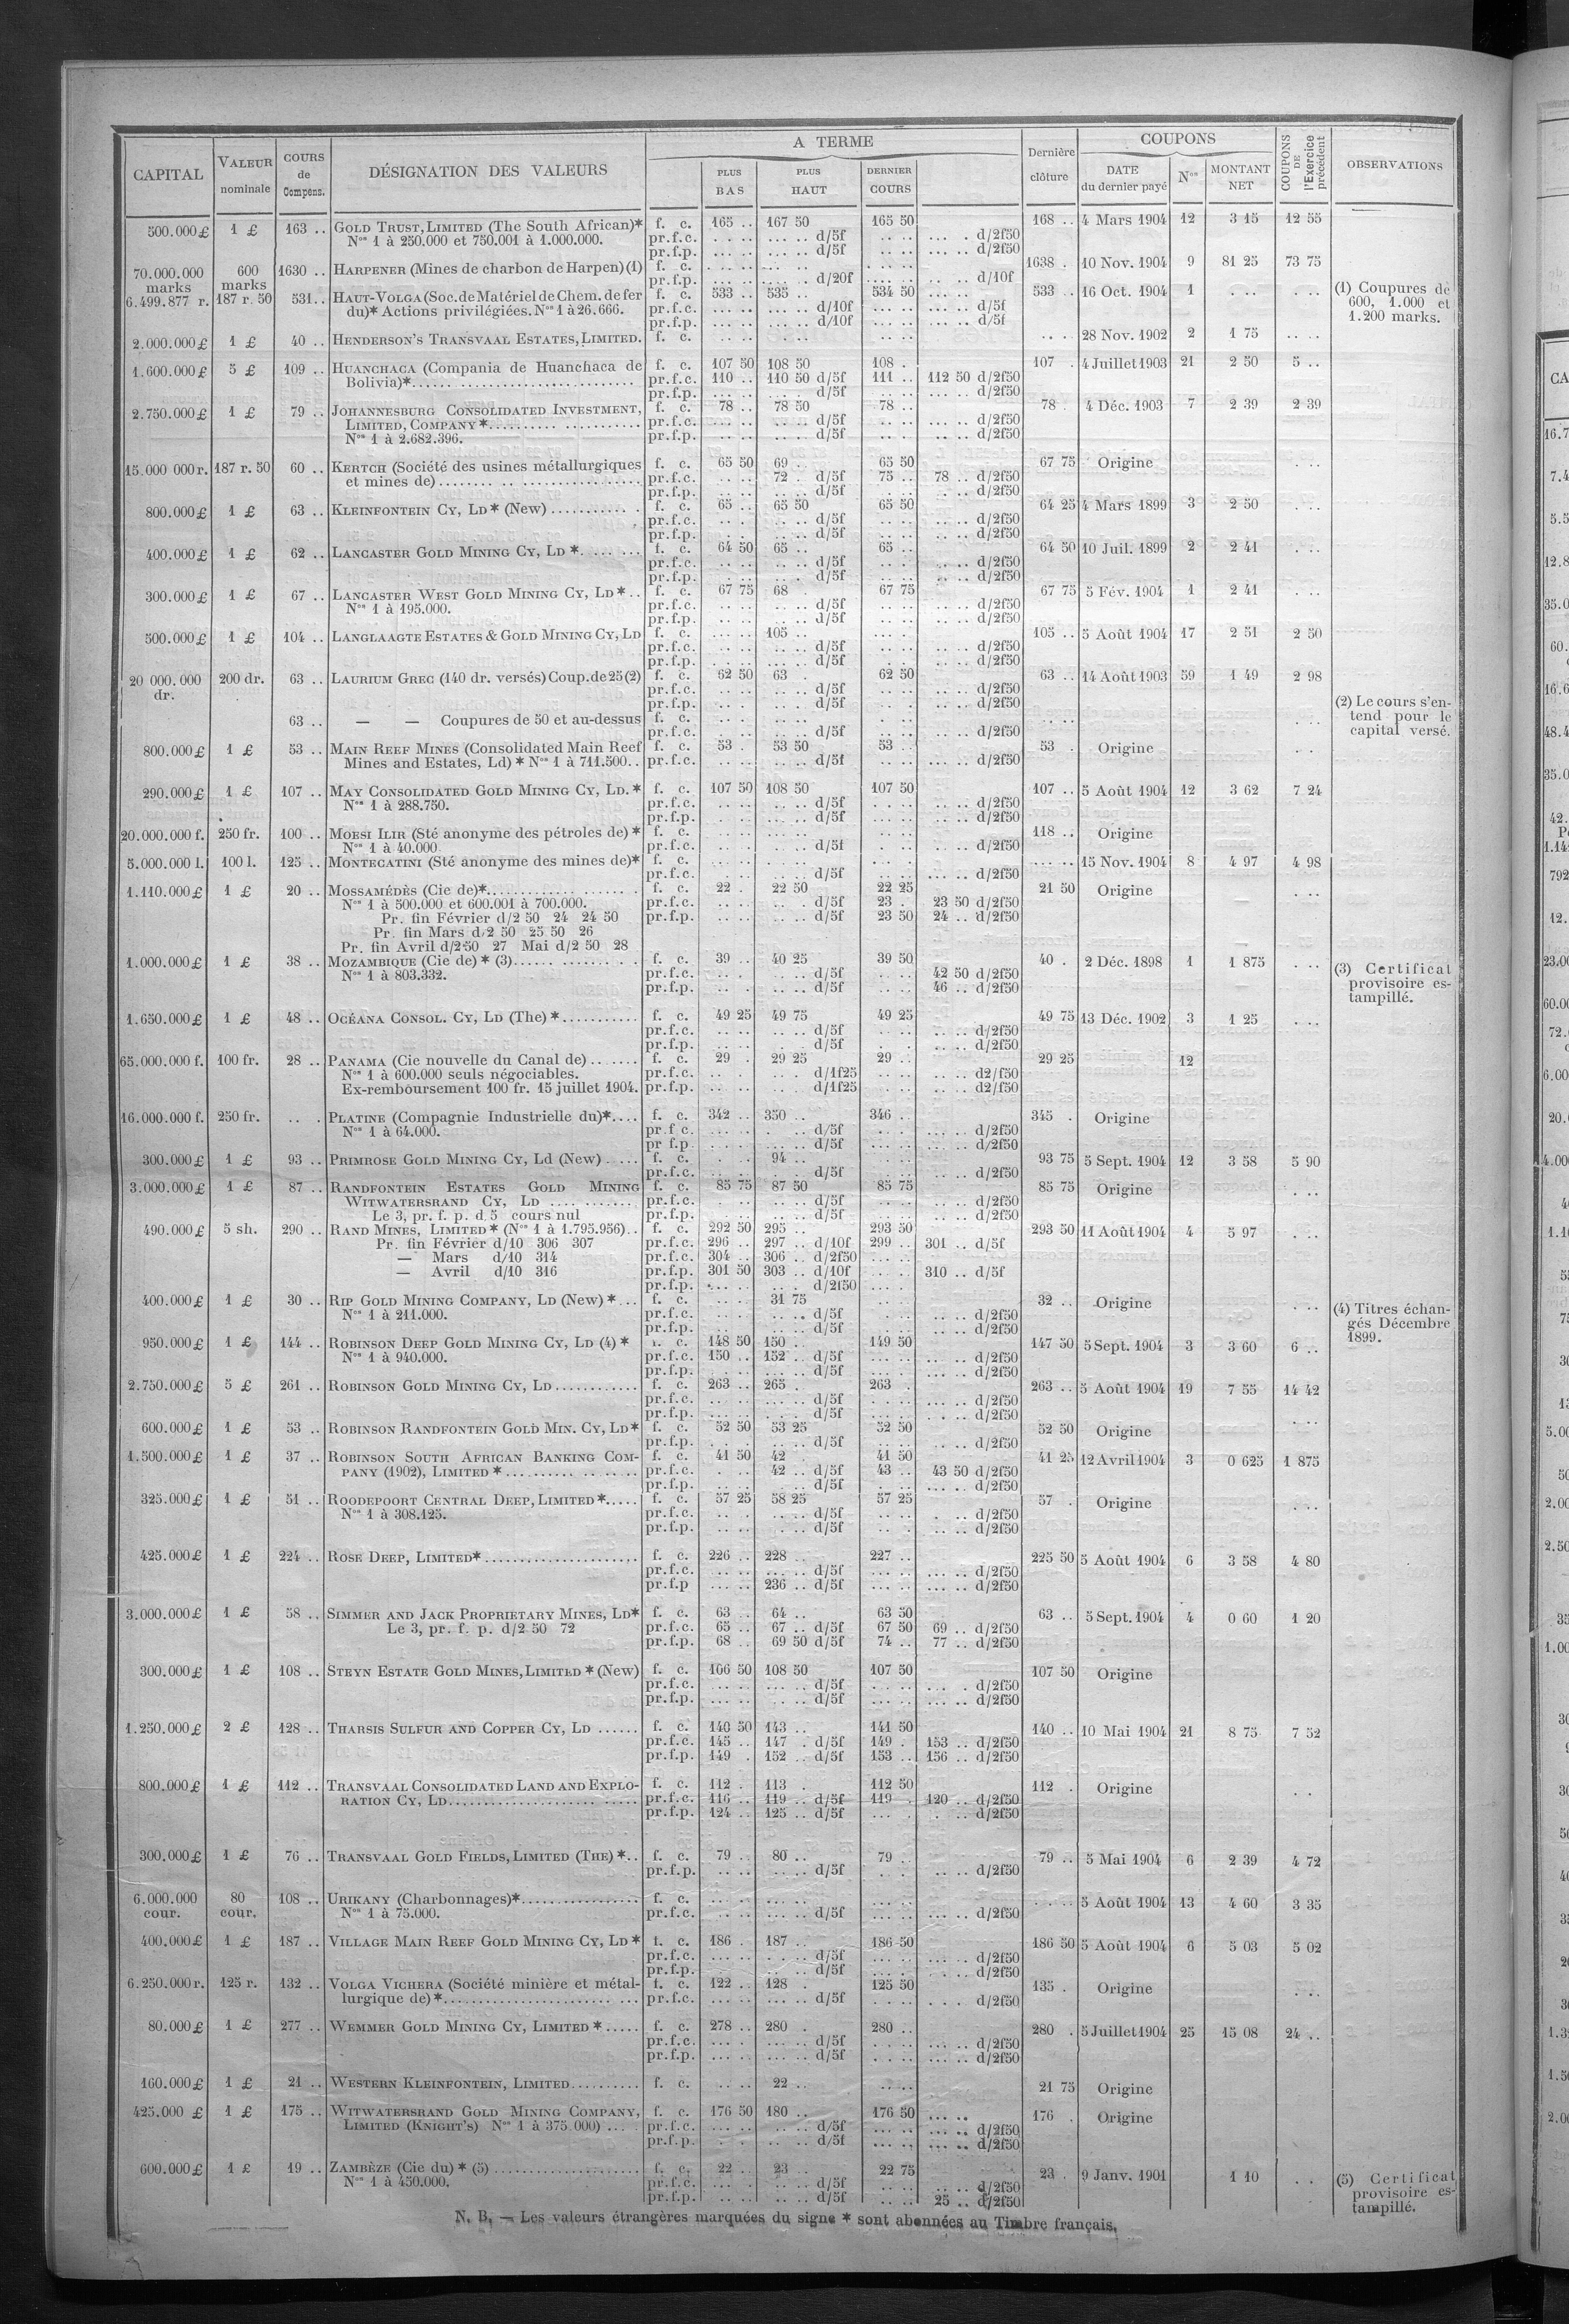 A TERME
COUPONS
CAPITAL
VALEUR nominale
COURS de Compens.
DÉSIGNATION DES VALEURS
PLUS BAS
PLUS HAUT
DERNIER COURS
Dernière clôture
DATE du dernier payé
Nos
MONTANT NET
COUPONS DE l'Exercice précédent
OBSERVATIONS
500.000 £ 1 £ 163 .. GOLD TRUST, LIMITED (The South African)* f. c. 165 .. 167 50 165 50 168 .. 4 Mars 1904 12 3 15 12 55
Nos 1 à 250.000 et 750.001 à 1.000.000. pr.f.c. d/5f d/2f50
pr.f.p. d/5f d/2f50
70.000.000 marks 600 marks 1630 .. HARPENER (Mines de charbon de Harpen) (1) f. c. 1638 . 10 Nov. 1904 9 81 25 73 75
pr.f.p. d/20f d/10f
6.499.877 r. 187 r. 50 531 .. HAUT-VOLGA (Soc. de Matériel de Chem. de fer f. c. 533 .. 535 .. 534 50 533 .. 16 Oct. 1904 1
du)* Actions privilégiées. Nos 1 à 26.666. pr.f.c. d/10f d/5f
pr.f.p. d/10f d/5f
(1) Coupures de
600, 1.000 et
1.200 marks.
2.000.000 £ 1 £ 40 .. HENDERSON'S TRANSVAAL ESTATES, LIMITED. f. c. 28 Nov. 1902 2 1 75
1.600.000 £ 5 £ 109 .. HUANCHACA (Compania de Huanchaca de f. c. 107 50 108 50 108 . 107 . 4 Juillet 1903 21 2 50 5 ..
Bolivia)* pr.f.c. 110 .. 110 50 d/5f 111 .. 112 50 d/2f50
pr.f.p. d/5f d/2f50
2.750.000 £ 1 £ 79 .. JOHANNESBURG CONSOLIDATED INVESTMENT, f. c. 78 .. 78 50 78 .. 78 . 4 Déc. 1903 7 2 39 2 39
LIMITED, COMPANY * pr.f.c. d/5f d/2f50
Nos 1 à 2.682.396. pr.f.p. d/5f d/2f50
15.000 000 r. 187 r. 50 60 .. KERTCH (Société des usines métallurgiques f. c. 65 50 69 . 65 50 67 75 Origine
et mines de) pr.f.c. 72 . d/5f 75 .. 78 .. d/2f50
pr.f.p. d/5f d/2f50
800.000 £ 1 £ 63 .. KLEINFONTEIN CY, LD * (New) f. c. 65 .. 65 50 65 50 64 25 4 Mars 1899 3 2 50
pr.f.c. d/5f d/2f50
pr.f.p. d/5f d/2f50
400.000 £ 1 £ 62 .. LANCASTER GOLD MINING CY, LD * f. c. 64 50 65 .. 65 .. 64 50 10 Juil. 1899 2 2 41
pr.f.c. d/5f d/2f50
pr.f.p. d/5f d/2f50
300.000 £ 1 £ 67 .. LANCASTER WEST GOLD MINING CY, LD * f. c. 67 75 68 . 67 75 67 75 5 Fév. 1904 1 2 41
Nos 1 à 195.000. pr.f.c. d/5f d/2f50
pr.f.p. d/5f d/2f50
500.000 £ 1 £ 104 .. LANGLAAGTE ESTATES & GOLD MINING CY, LD f. c. 105 .. 105 .. 5 Août 1904 17 2 51 2 50
pr.f.c. d/5f d/2f50
pr.f.p. d/5f d/2f50
20 000.000 dr. 200 dr. 63 .. LAURIUM GREC (140 dr. versés) Coup. de 25 (2) f. c. 62 50 63 . 62 50 63 .. 14 Août 1903 59 1 49 2 98
pr.f.c. d/5f d/2f50
pr.f.p. d/5f d/2f50
63 .. — — Coupures de 50 et au-dessus f. c.
pr.f.c. d/5f d/2f50
(2) Le cours s'en-
tend pour le
capital versé.
800.000 £ 1 £ 53 .. MAIN REEF MINES (Consolidated Main Reef f. c. 53 . 53 50 53 . 53 . Origine
Mines and Estates, Ld) * Nos 1 à 711.500 .. pr.f.c. d/5f d/2f50
290.000 £ 1 £ 107 .. MAY CONSOLIDATED GOLD MINING CY, LD. * f. c. 107 50 108 50 107 50 107 .. 5 Août 1904 12 3 62 7 24
Nos 1 à 288.750. pr.f.c. d/5f d/2f50
pr.f.p. d/5f d/2f50
20.000.000 f. 250 fr. 100 .. MOESI ILIR (Sté anonyme des pétroles de) * f. c. 118 .. Origine
Nos 1 à 40.000 pr.f.c. d/5f d/2f50
5.000.000 l. 100 l. 125 .. MONTECATINI (Sté anonyme des mines de)* f. c. 15 Nov. 1904 8 4 97 4 98
pr.f.c. d/5f d/2f50
1.110.000 £ 1 £ 20 .. MOSSAMÉDÈS (Cie de)* f. c. 22 . 22 50 22 25 21 50 Origine
Nos 1 à 500.000 et 600.001 à 700.000. pr.f.c. d/5f 23 . 23 50 d/2f50
Pr. fin Février d/2 50 24 24 50 pr.f.p. d/5f 23 50 24 .. d/2f50
Pr. fin Mars d/2 50 25 50 26
Pr. fin Avril d/2 50 27 Mai d/2 50 28
1.000.000 £ 1 £ 38 .. MOZAMBIQUE (Cie de) * (3) f. c. 39 .. 40 25 39 50 40 . 2 Déc. 1898 1 1 875
Nos 1 à 803.332. pr.f.c. d/5f 42 50 d/2f50
pr.f.p. d/5f 46 .. d/2f50
(3) Certificat
provisoire es-
tampillé.
1.650.000 £ 1 £ 48 .. OCÉANA CONSOL. CY, LD (The) * f. c. 49 25 49 75 49 25 49 75 13 Déc. 1902 3 1 25
pr.f.c. d/5f d/2f50
pr.f.p. d/5f d/2f50
65.000.000 f. 100 fr. 28 .. PANAMA (Cie nouvelle du Canal de) f. c. 29 . 29 25 29 .. 29 25 12
Nos 1 à 600.000 seuls négociables. pr.f.c. d/1f25 d2/f50
Ex-remboursement 100 fr. 15 juillet 1904. pr.f.p. d/1f25 d2/f50
16.000.000 f. 250 fr. PLATINE (Compagnie Industrielle du)* f. c. 342 .. 350 .. 346 .. 345 . Origine
Nos 1 à 64.000. pr.f.c. d/5f d/2f50
pr f.p. d/5f d/2f50
300.000 £ 1 £ 93 .. PRIMROSE GOLD MINING CY, Ld (New) f. c. 94 .. 93 75 5 Sept. 1904 12 3 58 5 90
pr.f.c. d/5f d/2f50
3.000.000 £ 1 £ 87 .. RANDFONTEIN ESTATES GOLD MINING f. c. 85 75 87 50 85 75 85 75 Origine
WITWATERSRAND CY, LD pr.f.c. d/5f d/2f50
Le 3, pr. f. p. d 5 cours nul pr.f.p. d/5f d/2f50
490.000 £ 5 sh. 290 .. RAND MINES, LIMITED * (Nos 1 à 1.795.956) f. c. 292 50 295 .. 293 50 293 50 11 Août 1904 4 5 97
Pr. fin Février d/10 306 307 pr.f.c. 296 .. 297 .. d/10f 299 .. 301 .. d/5f
— Mars d/10 314 pr.f.c. 304 .. 306 .. d/2f50
— Avril d/10 316 pr.f.p. 301 50 303 .. d/10f 310 .. d/5f
pr.f.p. d/2f50
400.000 £ 1 £ 30 .. RIP GOLD MINING COMPANY, LD (New) * f. c. 31 75 32 .. Origine
Nos 1 à 211.000. pr.f.c. d/5f d/2f50
pr.f.p. d/5f d/2f50
(4) Titres échan-
gés Décembre
1899.
950.000 £ 1 £ 144 .. ROBINSON DEEP GOLD MINING CY, LD (4) * f. c. 148 50 150 .. 149 50 147 50 5 Sept. 1904 3 3 60 6 ..
Nos 1 à 940.000. pr.f.c. 150 .. 152 .. d/5f d/2f50
pr.f.p. d/5f d/2f50
2.750.000 £ 5 £ 261 .. ROBINSON GOLD MINING CY, LD f. c. 263 .. 265 . 263 . 263 .. 5 Août 1904 19 7 55 14 42
pr.f.c. d/5f d/2f50
pr.f.p. d/5f d/2f50
600.000 £ 1 £ 53 .. ROBINSON RANDFONTEIN GOLD MIN. CY, LD* f. c. 52 50 53 25 52 50 52 50 Origine
pr.f.p. d/5f d/2f50
1.500.000 £ 1 £ 37 .. ROBINSON SOUTH AFRICAN BANKING COM- f. c. 41 50 42 . 41 50 41 25 12 Avril 1904 3 0 625 1 875
PANY (1902), LIMITED * pr.f.c. 42 .. d/5f 43 .. 43 50 d/2f50
pr.f.p. d/5f d/2f50
325.000 £ 1 £ 51 .. ROODEPOORT CENTRAL DEEP, LIMITED * f. c. 57 25 58 25 57 25 57 . Origine
Nos 1 à 308.125. pr.f.c. d/5f d/2f50
pr.f.p. d/5f d/2f50
425.000 £ 1 £ 224 .. ROSE DEEP, LIMITED* f. c. 226 .. 228 .. 227 .. 225 50 5 Août 1904 6 3 58 4 80
pr.f.c. d/5f d/2f50
pr.f.p 236 .. d/5f d/2f50
3.000.000 £ 1 £ 58 .. SIMMER AND JACK PROPRIETARY MINES, LD* f. c. 63 .. 64 .. 63 50 63 .. 5 Sept. 1904 4 0 60 1 20
Le 3, pr. f. p. d/2 50 72 pr.f.c. 65 .. 67 .. d/5f 67 50 69 .. d/2f50
pr.f.p. 68 .. 69 50 d/5f 74 .. 77 .. d/2f50
300.000 £ 1 £ 108 .. STEYN ESTATE GOLD MINES, LIMITED * (New) f. c. 106 50 108 50 107 50 107 50 Origine
pr.f.c. d/5f d/2f50
pr.f.p. d/5f d/2f50
1.250.000 £ 2 £ 128 .. THARSIS SULFUR AND COPPER CY, LD f. c. 140 50 143 .. 141 50 140 .. 10 Mai 1904 21 8 75 7 52
pr.f.c. 145 .. 147 . d/5f 149 . 153 .. d/2f50
pr.f.p. 149 . 152 .. d/5f 153 .. 156 .. d/2f50
800.000 £ 1 £ 112 .. TRANSVAAL CONSOLIDATED LAND AND EXPLO- f. c. 112 . 113 . 112 50 112 . Origine
RATION CY, LD pr.f.c. 116 .. 119 .. d/5f 119 . 120 .. d/2f50
pr.f.p. 124 .. 125 .. d/5f d/2f50
300.000 £ 1 £ 76 .. TRANSVAAL GOLD FIELDS, LIMITED (THE) * f. c. 79 .. 80 .. 79 .. 79 .. 5 Mai 1904 6 2 39 4 72
pr.f.p. d/5f d/2f50
6.000.000 cour. 80 cour. 108 .. URIKANY (Charbonnages)* f. c. 5 Août 1904 13 4 60 3 35
Nos 1 à 75.000. pr.f.c. d/5f d/2f50
400.000 £ 1 £ 187 .. VILLAGE MAIN REEF GOLD MINING CY, LD * f. c. 186 . 187 .. 186 50 186 50 5 Août 1904 6 5 03 5 02
pr.f.c. d/5f d/2f50
pr.f.p. d/5f d/2f50
6.250.000 r. 125 r. 132 .. VOLGA VICHERA (Société minière et métal- f. c. 122 .. 128 . 125 50 135 . Origine
lurgique de) * pr.f.c. d/5f d/2f50
80.000 £ 1 £ 277 .. WEMMER GOLD MINING CY, LIMITED * f. c. 278 .. 280 . 280 .. 280 . 5 Juillet 1904 25 15 08 24 ..
pr.f.c. d/5f d/2f50
pr.f.p. d/5f d/2f50
160.000 £ 1 £ 21 .. WESTERN KLEINFONTEIN, LIMITED f. c. 22 .. 21 75 Origine
425.000 £ 1 £ 175 .. WITWATERSRAND GOLD MINING COMPANY, f. c. 176 50 180 .. 176 50 176 . Origine
LIMITED (KNIGHT'S) Nos 1 à 375 000) pr.f.c. d/5f d/2f50
pr.f.p. d/5f d/2f50
600.000 £ 1 £ 19 .. ZAMBÈZE (Cie du) * (5) f. c. 22 .. 23 .. 22 75 23 . 9 Janv. 1901 1 10
Nos 1 à 450.000. pr.f.c. d/5f d/2f50
pr.f.p. d/5f 25 .. d/2f50
(5) Certificat
provisoire es-
tampillé.
N. B. — Les valeurs étrangères marquées du signe * sont abonnées au Timbre français.